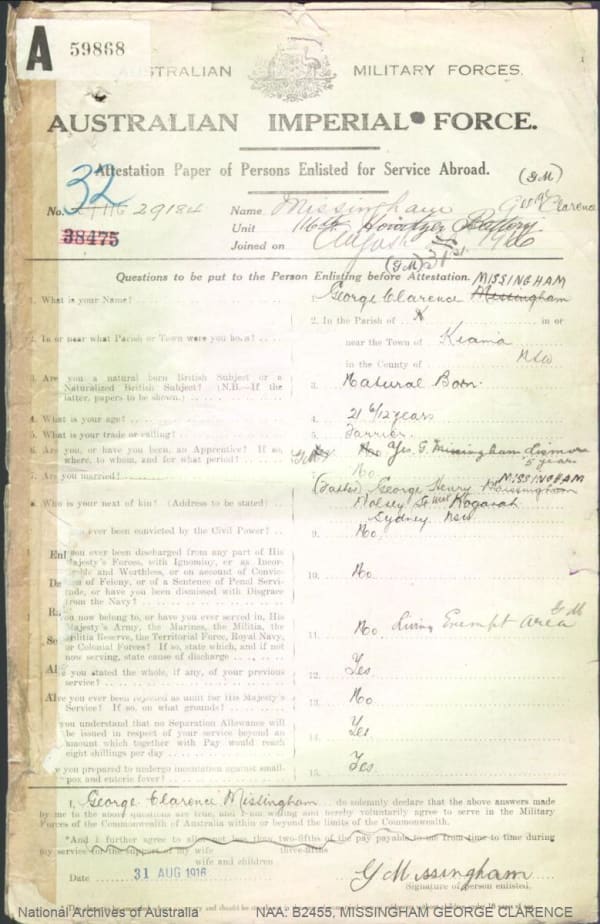 A 59868
AUSTRALIAN MILITARY FORCES.
AUSTRALIAN IMPERIAL FORCE.
Attestation Paper of Persons Enlisted for Service Abroad.
(G.M)
32
No. 29184 Name Missingham George Clarence
38475 Unit 116th Howitzer Battery
Joined on August 1916
31st
(G.M)
Questions to be put to the Person Enlisting before Attestation.
MISSINGHAM
1. What is your Name? George Clarence Missingham
2. In the Parish of X in or
2. In or near what Parish or Town were you born? near the Town of Kiama
in the County of NSW
3. Are you a natural born British Subject or a
Naturalized British Subject? (N.B.—If the 3. Natural Born.
latter, papers to be shown.)
4. What is your age? 4. 21 6/12 years
5. What is your trade or calling? 5. Farrier.
6. Are you, or have you been, an Apprentice? If so, No Yes G. Missingham Lismore
where, to whom, and for what period? 5 years
7. Are you married? No
MISSINGHAM
(Father) George Henry Missingham
8. Who is your next of kin? (Address to be stated) Kogarah
Sydney NSW
ever been convicted by the Civil Power? 9. No
you ever been discharged from any part of His
Majesty's Forces, with Ignominy, or as Incor-
rigible and Worthless, or on account of Convic-
tion of Felony, or of a Sentence of Penal Servi- 10. No
tude, or have you been dismissed with Disgrace
from the Navy?
you now belong to, or have you ever served in, His
Majesty's Army, the Marines, the Militia, the G M
Militia Reserve, the Territorial Force, Royal Navy, 11. No Living Exempt Area
or Colonial Forces? If so, state which, and if not
now serving, state cause of discharge
you stated the whole, if any, of your previous
service? 12. Yes
ve you ever been rejected as unfit for His Majesty's
Service? If so, on what grounds? 13. No
you understand that no Separation Allowance will
be issued in respect of your service beyond an 14. Yes
amount which together with Pay would reach
eight shillings per day
you prepared to undergo inoculation against small-
pox and enteric fever? 15. Yes
I, George Clarence Missingham do solemnly declare that the above answers made
by me to the above questions are true, and I am willing and hereby voluntarily agree to serve in the Military
Forces of the Commonwealth of Australia within or beyond the limits of the Commonwealth.
*And I further agree to allot not less than two-fifths of the pay payable to me from time to time during
three-fifths
my service for the support of my wife
wife and children
Date 31 AUG 1916 G Missingham
Signature of person enlisted.
National Archives of Australia NAA: B2455, MISSINGHAM GEORGE CLARENCE